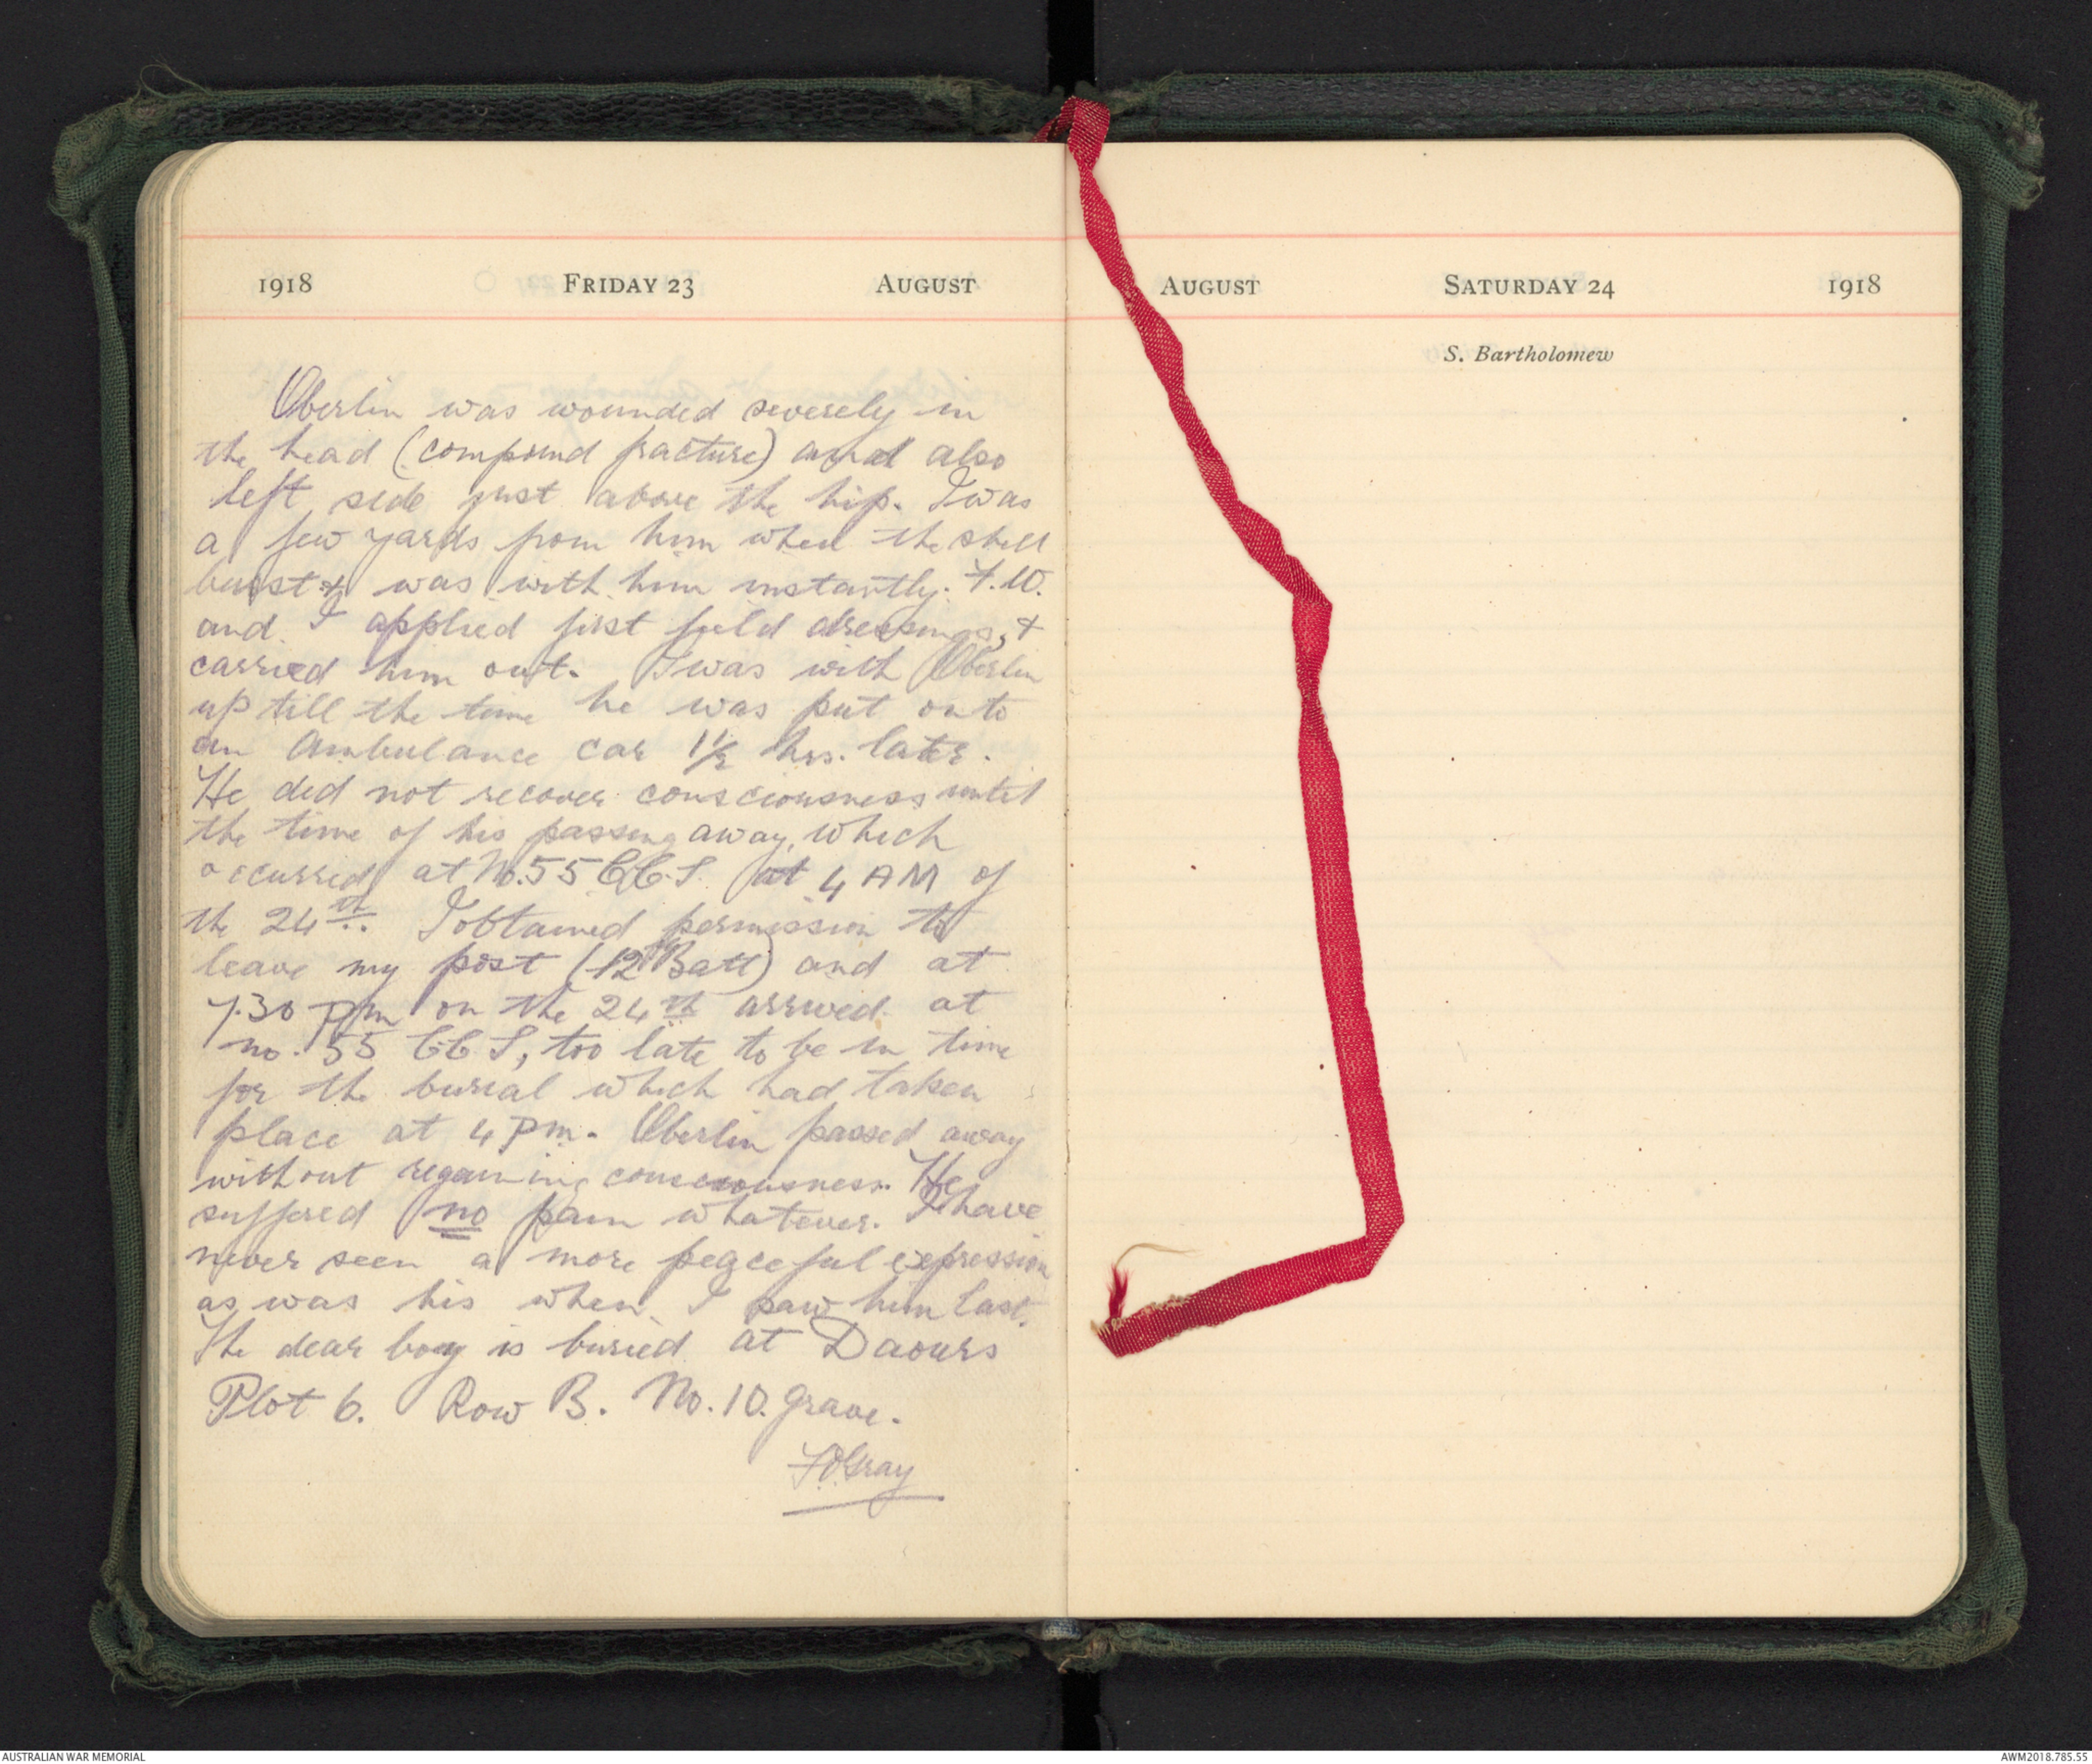 1918 FRIDAY 23 AUGUST
Oberlin was wounded severely in
the head (compound fracture) and also
left side just above the hip. I was
a few yards from him when the shell
burst & was with him instantly. F.W.
and I applied first field dressings, &
carried him out. I was with Oberlin
up till the time he was put onto
an Ambulance car 1½ hrs. later.
He did not recover consciousness until
the time of his passing away, which
occurred at No. 55 C.C.S. at 4 AM of
the 24th. I obtained permission to
leave my post (12th Batt) and at
7.30 pm on the 24th arrived at
no. 55 CCS, too late to be in time
for the burial which had taken
place at 4 pm. Oberlin passed away
without regaining consciousness. He
suffered no pain whatever. I have
never seen a more peaceful expression
as was his when I saw him last.
The dear boy is buried at Daours
Plot 6. Row B. No. 10. grave.
Gray
AUGUST SATURDAY 24 1918
S. Bartholomew
AUSTRALIAN WAR MEMORIAL
AWM2018.785.53